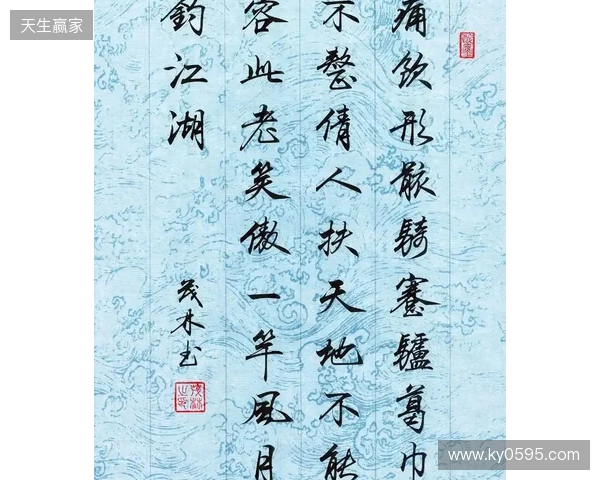 天生赢家
痛饮形骸騎蹇驢葛巾
不整倩人扶天地不能
容此老笑傲一竿風月
釣江湖
茂林书
www.ky0595.com